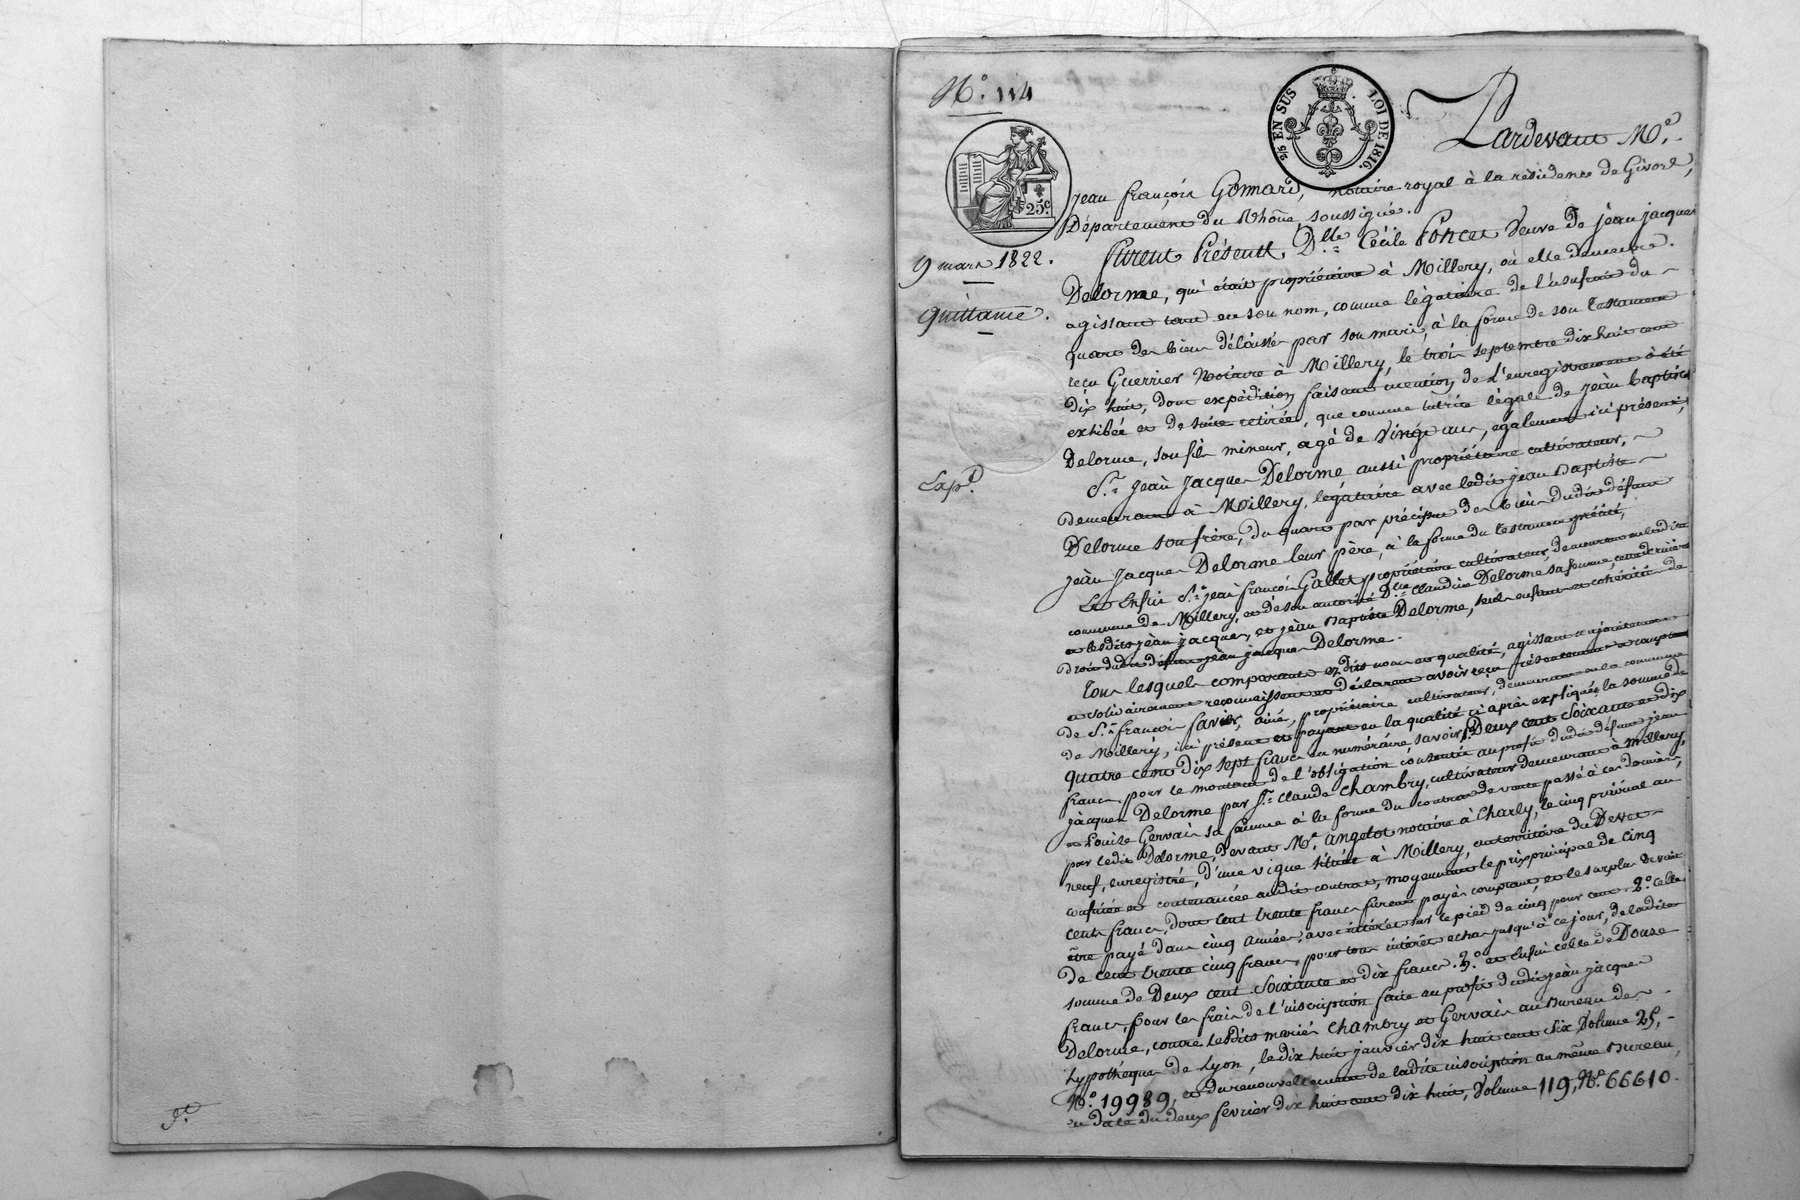 N.° 114
2/5 EN SUS LOI DE 1816.
25.c
9 mars 1822.
Quittance.
Exp.é
Pardevant M.e
Jean françois Gonnard, Notaire royal à la résidence de Givors,
Département du Rhône, soussigné.
furent Présents, D.lle Cécile Poncet veuve de Jean jacques
Delorme, qui était propriétaire à Millery, où elle demeure.
agissant tant en son nom, comme légataire de l'usufruit du
quart des biens délaissés par son mari, à la forme de son Testament
reçu Guerrier Notaire à Millery, le trois septembre dix huit cent
dix huit, dont expédition faisant mention de l'enregistrement a été
exhibée et de suite retirée, que comme tutrice légale de Jean baptiste
Delorme, son fils mineur, agé de vingt ans, egalement ici présent,
S.r Jean Jacques Delorme aussi propriétaire cultivateur,
demeurant à Millery, légataire avec ledit jean Baptiste
Delorme son frère, du quart par préciput des biens dudit défunt
jean Jacques Delorme leur père, à la forme du testament précité,
Et Enfin S.r jean françois Gallet propriétaire cultivateur, demeurant en ladite
commune de Millery, et de son autorité D.lle Claudine Delorme sa femme, cette dernière
et lesdits jean jacques, et jean Baptiste Delorme, seuls enfants et cohéritiers de
Droit dudit défunt jean jacques Delorme.
Tous lesquels comparants ez dits noms et qualités, agissant conjointement
et solidairement reconnaissent et déclarent avoir reçu présentement et comptant
de S.r françois favier, ainé, propriétaire cultivateur, demeurant en la commune
de Millery, ici présent et payant en la qualité ci après expliquée, la somme de
quatre cent dix sept francs en numéraire, savoir, 1.° Deux cent soixante et dix
francs, pour le montant de l'obligation consentie au profit dudit défunt jean
jacques Delorme par S.r Claude Chambry, cultivateur demeurant à Millery,
et Louise Gervais sa femme à la forme du contrat de vente passé à ces derniers,
par ledit Delorme, devant M.e angelot notaire à Charly, le cinq prairial an
neuf, enregistré, d'une vigne située à Millery, au territoire du Devet
confinée et contenancée audit contrat, moyennant le prix principal de cinq
cents francs, dont cent trente francs furent payés comptant, et le surplus devait
être payé dans cinq années, avec intérêt sur le pied de cinq pour cent. 2.° celle
de cent trente cinq francs, pour tous intérêts echus jusqu'à ce jour, de ladite
somme de Deux cent soixante et dix francs. 3.° et Enfin celle de Douze
francs, pour les frais de l'inscription faite au profit dudit jean jacques
Delorme, contre lesdits mariés Chambry et Gervais au Bureau des
hypothèques de Lyon, le dix huit janvier dix huit cent Six Volume 25,
N.° 19989, et du renouvellement de ladite inscription au même Bureau,
en date du deux février dix huit cent dix huit, Volume 119, N.° 66610.